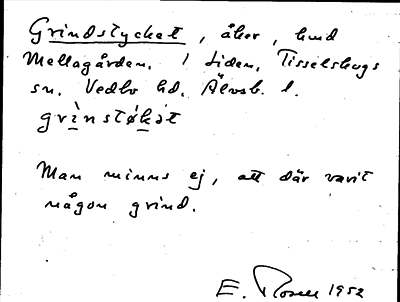 Grindstycket, åker, hmd
Mellagården. 1 Liden, Tisselskogs
sn. Vedbo hd. Älvsb. l.
grìnstø̀kət
Man minns ej, att där varit
någon grind.
E. Rosell 1952